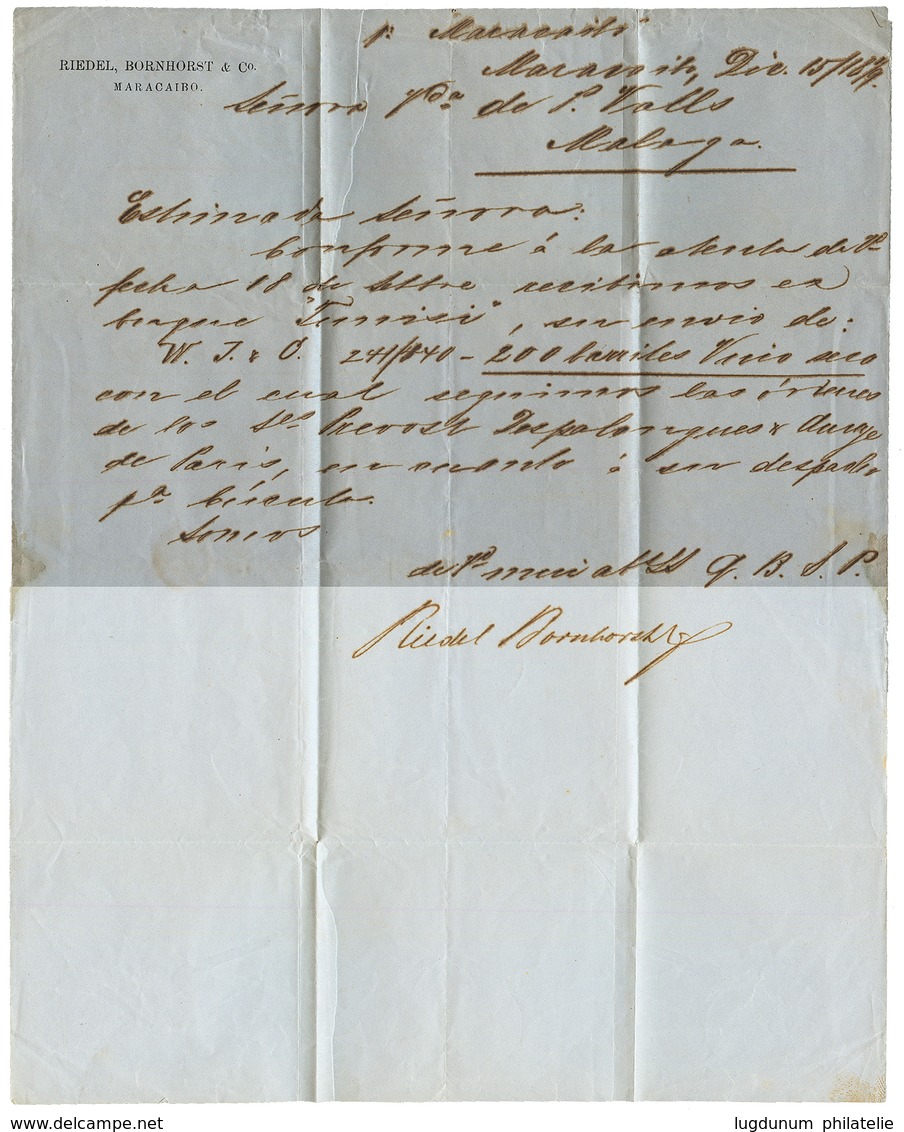 pr Maracaibo
RIEDEL, BORNHORST & Co.
MARACAIBO.
Maracaibo, Dic. 15/
Señora Vda de P. Valls
Malaga.
Estimada Señora:
Conforme á la atenta de Vd
fecha 18 de Setbre recibimos ex
bergue "", su envio de:
W. J. & O. 241/440 - 200 barriles Vino seco
con el cual seguimos las órdenes
de los Srs Prevost Despalangues &
de Paris, en cuanto á su despacho
pa Cúcuta.
Somos
de Vd muy atts SS Q. B. S. P.
Riedel Bornhorst
delcampe.net
lugdunum philatelie